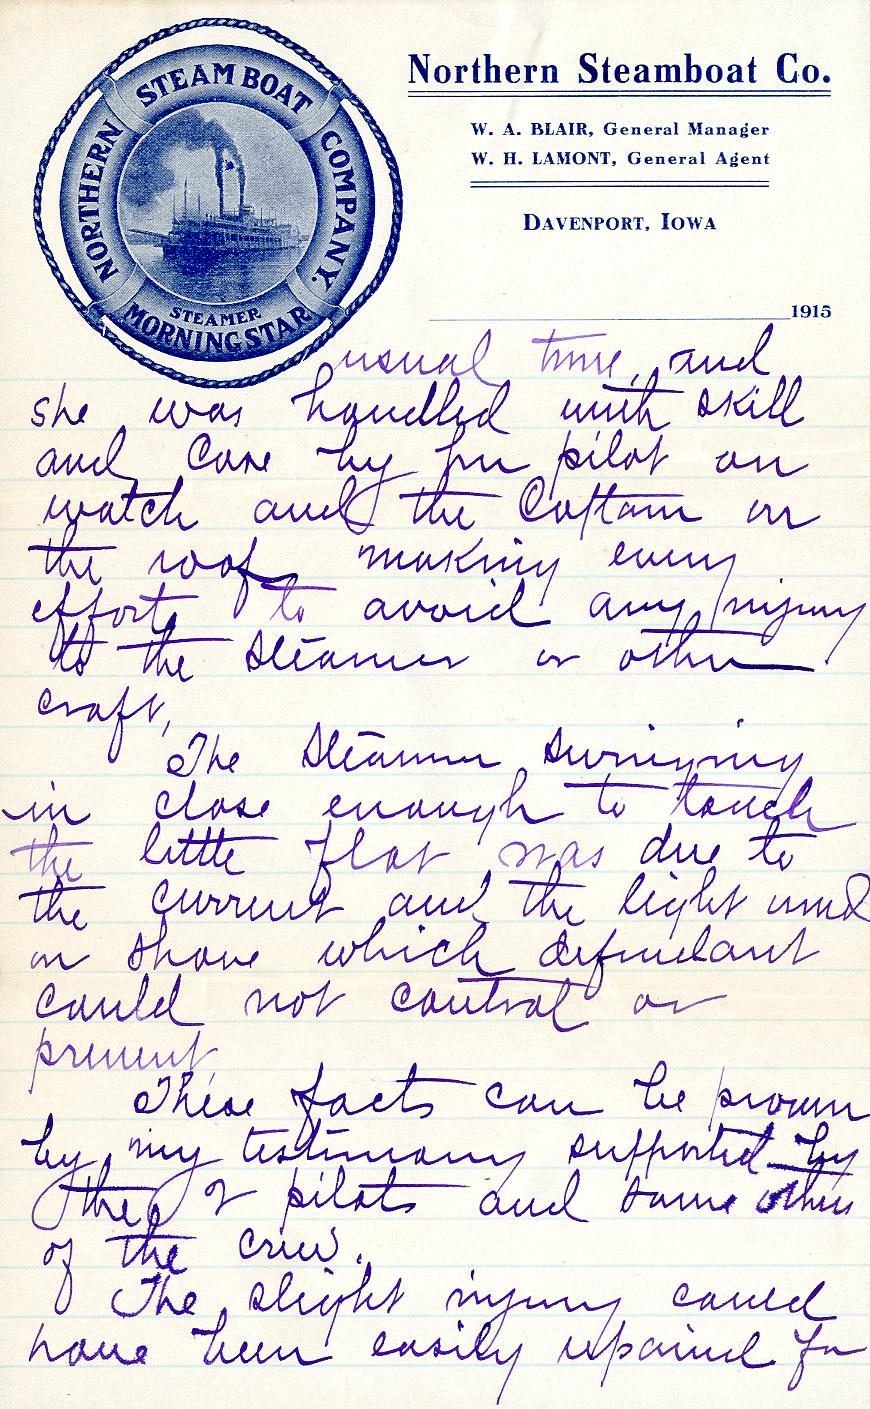 NORTHERN STEAMBOAT COMPANY.
STEAMER
MORNING STAR
Northern Steamboat Co.
W. A. BLAIR, General Manager
W. H. LAMONT, General Agent
DAVENPORT, IOWA
1915
usual time, and
she was handled with skill
and care by her pilot on
watch and the Captain on
the roof making every
effort to avoid any injury
to the steamer or other
craft,
The steamer swinging
in close enough to touch
the little flat was due to
the current and the light wind
on shore which defendant
could not control or
prevent.
These facts can be proven
by my testimony supported by
the 2 pilots and some others
of the crew.
The slight injury could
have been easily repaired for